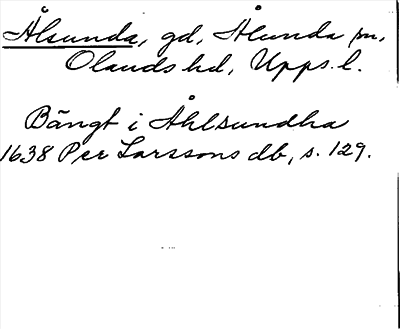 Ålsunda, gd, Ålunda sn,
Olands hd, Upps. l.
Bängt i Åhlsundha
1638 Per Larssons db, s. 129.